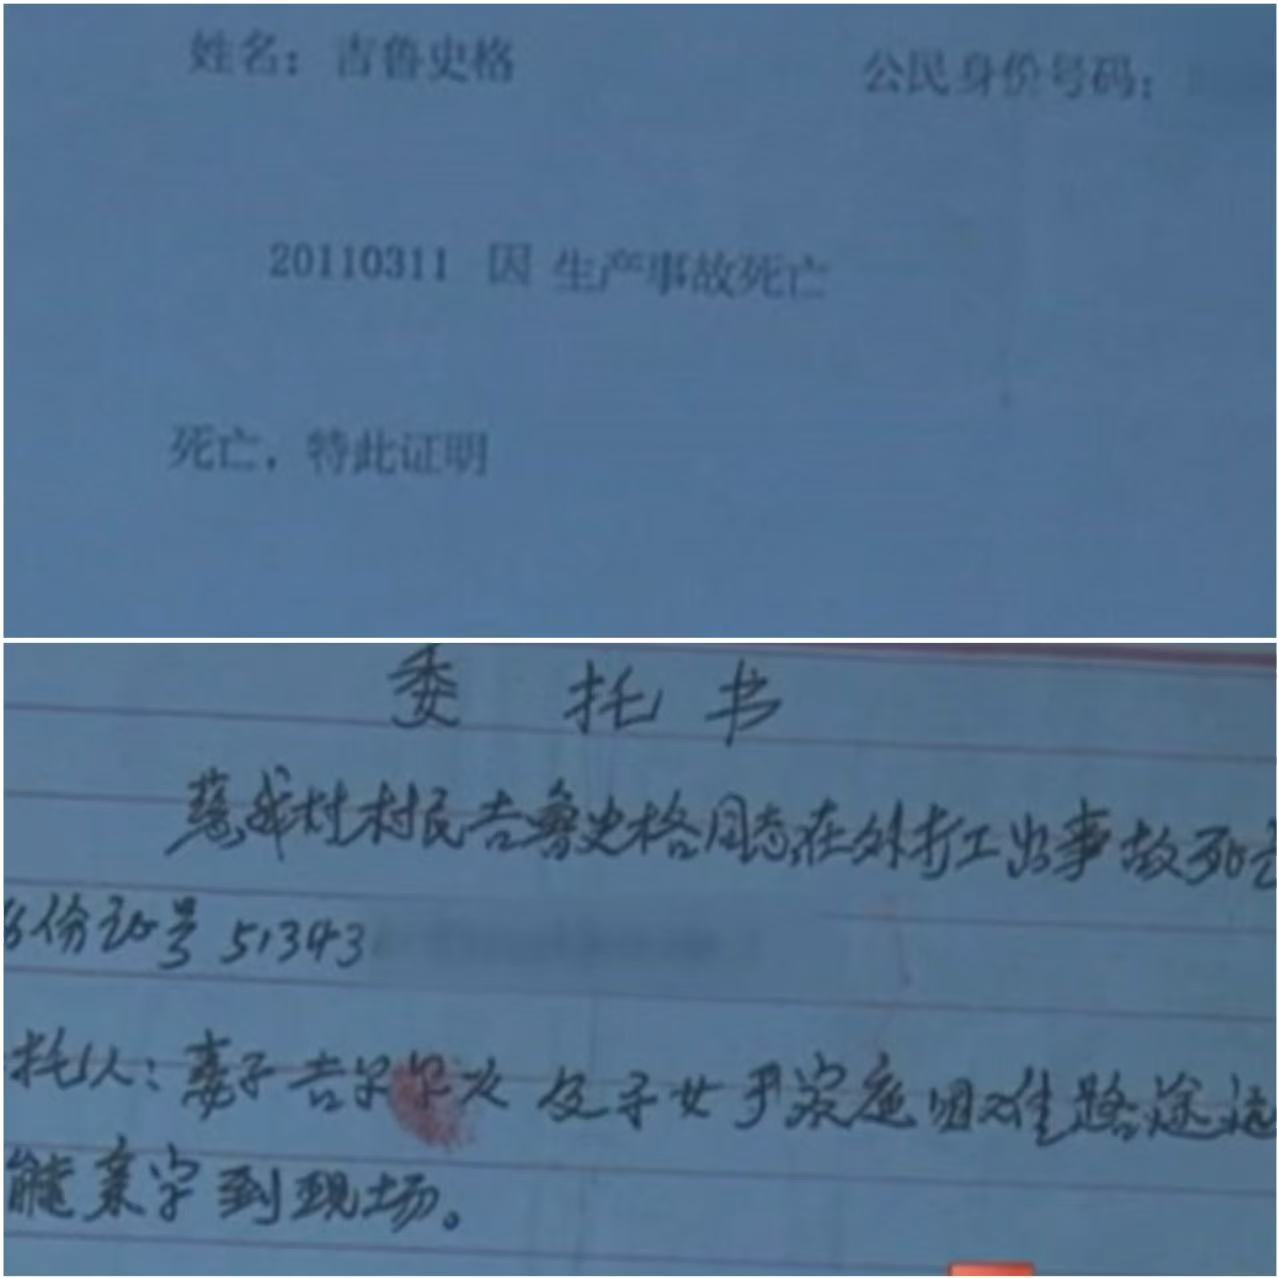 姓名：吉鲁史格 公民身份号码：
20110311 因 生产事故死亡
死亡，特此证明
委托书
村村民吉鲁史格同志在外打工出事故死亡
份证号 51343
托人：妻子吉 及子女于家庭困难路途
能亲字到现场。